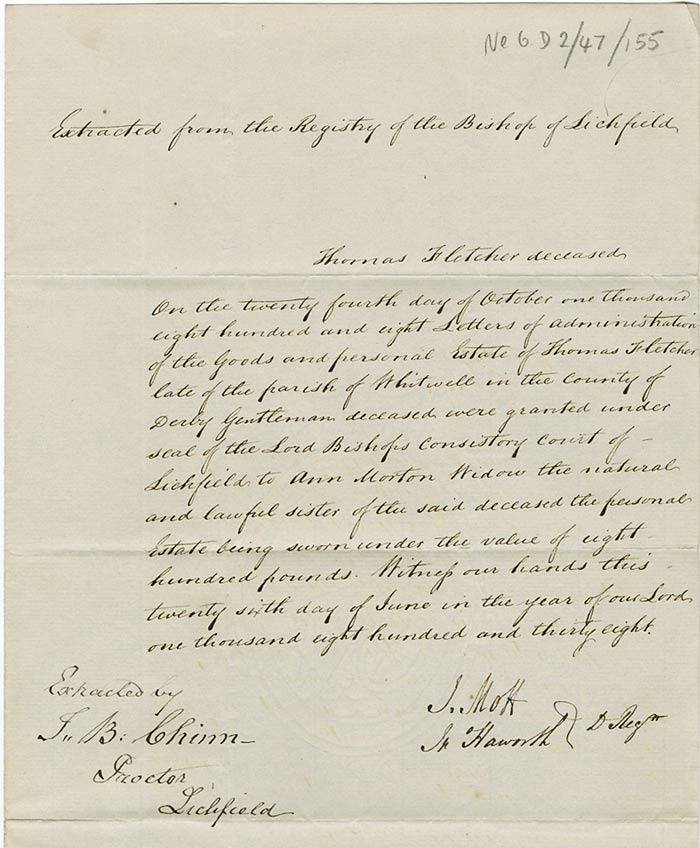 No 6 D2/47/155
Extracted from the Registry of the Bishop of Lichfield
Thomas Fletcher deceased
On the twenty fourth day of October one thousand
eight hundred and eight Letters of administration
of the Goods and personal Estate of Thomas Fletcher
late of the parish of Whitwell in the County of
Derby Gentleman deceased were granted under
seal of the Lord Bishops Consistory Court of -
Lichfield to Ann Morton Widow the natural
and lawful sister of the said deceased the personal
Estate being sworn under the value of eight -
hundred pounds. Witneſs our hands this -
twenty sixth day of June in the year of our Lord
one thousand eight hundred and thirty eight.
Extracted by
B: Chinn
Proctor
Lichfield
Mott
Jno Haworth } D Regrs